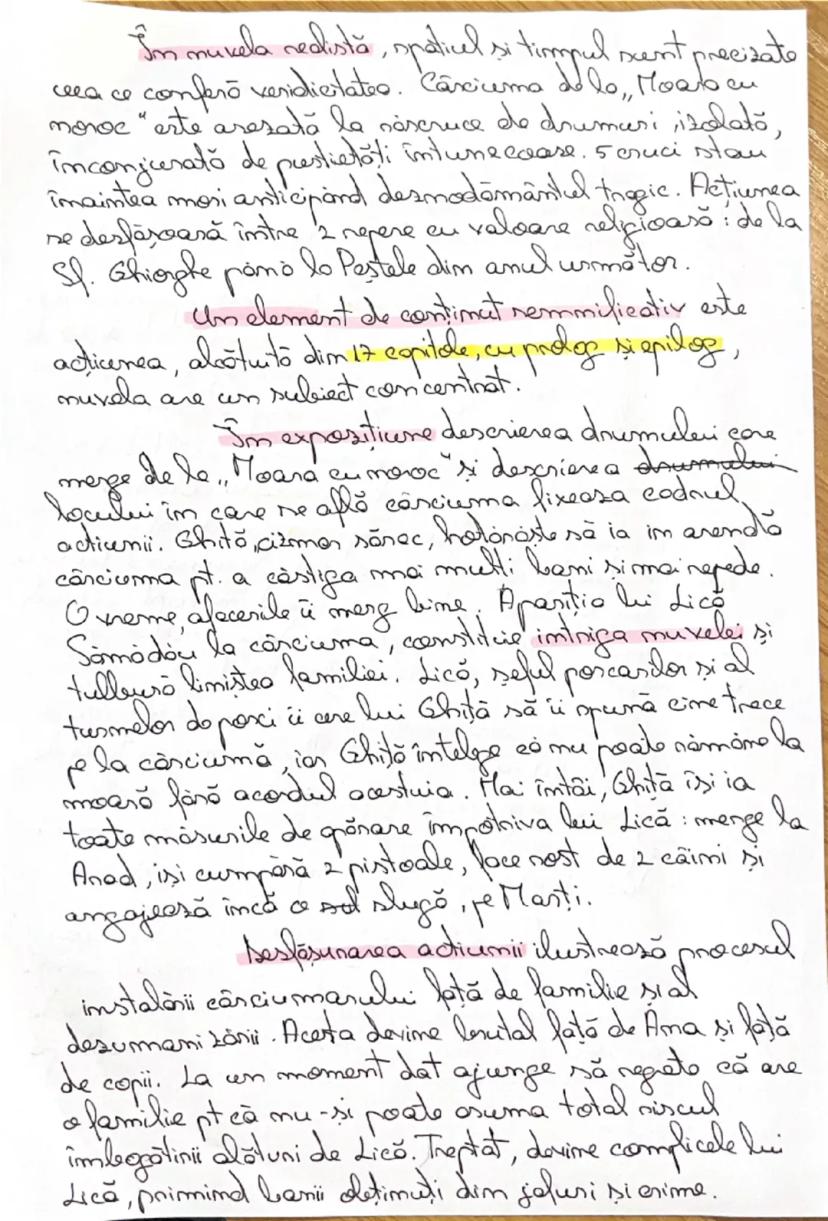 În nuvela realistă, spațiul și timpul sunt precizate
ceea ce conferă veridicitatea. Cârciuma de la „Moara cu
noroc" este așezată la răscruce de drumuri, izolată,
înconjurată de pustietăți întunecoase. 5 cruci stau
înaintea morii anticipând deznodământul tragic. Acțiunea
se desfășoară între 2 repere cu valoare religioasă: de la
Sf. Ghiorghe până la Paștele din anul următor.
Un element de conținut semnificativ este
acțiunea, alcătuită din 17 capitole, cu prolog și epilog,
nuvela are un subiect concentrat.
În expozițiune descrierea drumului care
merge de la „Moara cu noroc" și descrierea drumului
locului în care se află cârciuma fixeaza cadrul
acțiunii. Ghiță, cizmar sărac, hotărăște să ia in arendă
cârciuma pt. a câștiga mai mulți bani și mai repede.
O vreme, afacerile îi merg bine. Apariția lui Lică
Sămădău la cârciuma, constituie intriga nuvelei și
tulbură liniștea familiei. Lică, șeful porcarilor și al
turmelor de porci îi cere lui Ghiță să îi spună cine trece
pe la cârciumă, iar Ghiță întelege că nu poate rămâne la
moară fără acordul acestuia. Mai întâi, Ghiță își ia
toate măsurile de apărare împotriva lui Lică: merge la
Arad, iși cumpără 2 pistoale, face rost de 2 câini și
angajează încă o slugă, pe Marți.
Desfășurarea acțiunii ilustrează procesul
instalării cârciumarului față de familie și al
dezumanizării. Acesta devine brutal față de Ana și față
de copii. La un moment dat ajunge să regrete că are
o familie pt că nu-și poate asuma total riscul
îmbogățirii alături de Lică. Treptat, devine complicele lui
Lică, primind banii obținuți din jafuri și crime.